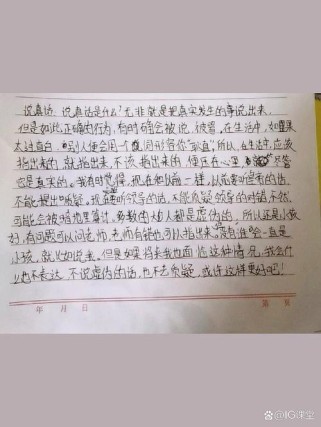 说真话 说真话是什么?无非就是把真实发生的事说出来,
但是如此正确的行为,有时确会被说,被冒。在生活中,如果
太过直白,别人便会用一个 词形容你"耿直",所以,在生活中,应该
指出来的,就指出来,不该指出来的,便压在心里,尽管
它是真实的。我有时觉得,现在和以前一样,以前要听皇帝的话,
不能提出质疑,现在要听领导的话,不能质疑领导的对错,不然,
可能会被暗地里算计,多数的大人都是虚伪的,所以还是小孩
好,有问题可以问老师,老师有错也可以指出来。没有体会一直是
小孩,就比如说我。但是如果将来我也面临这种情况,我会什
么也不表达,不说虚伪的话,也不去质疑,或许这样更好吧!
年 月 日 第 页
@IG课堂